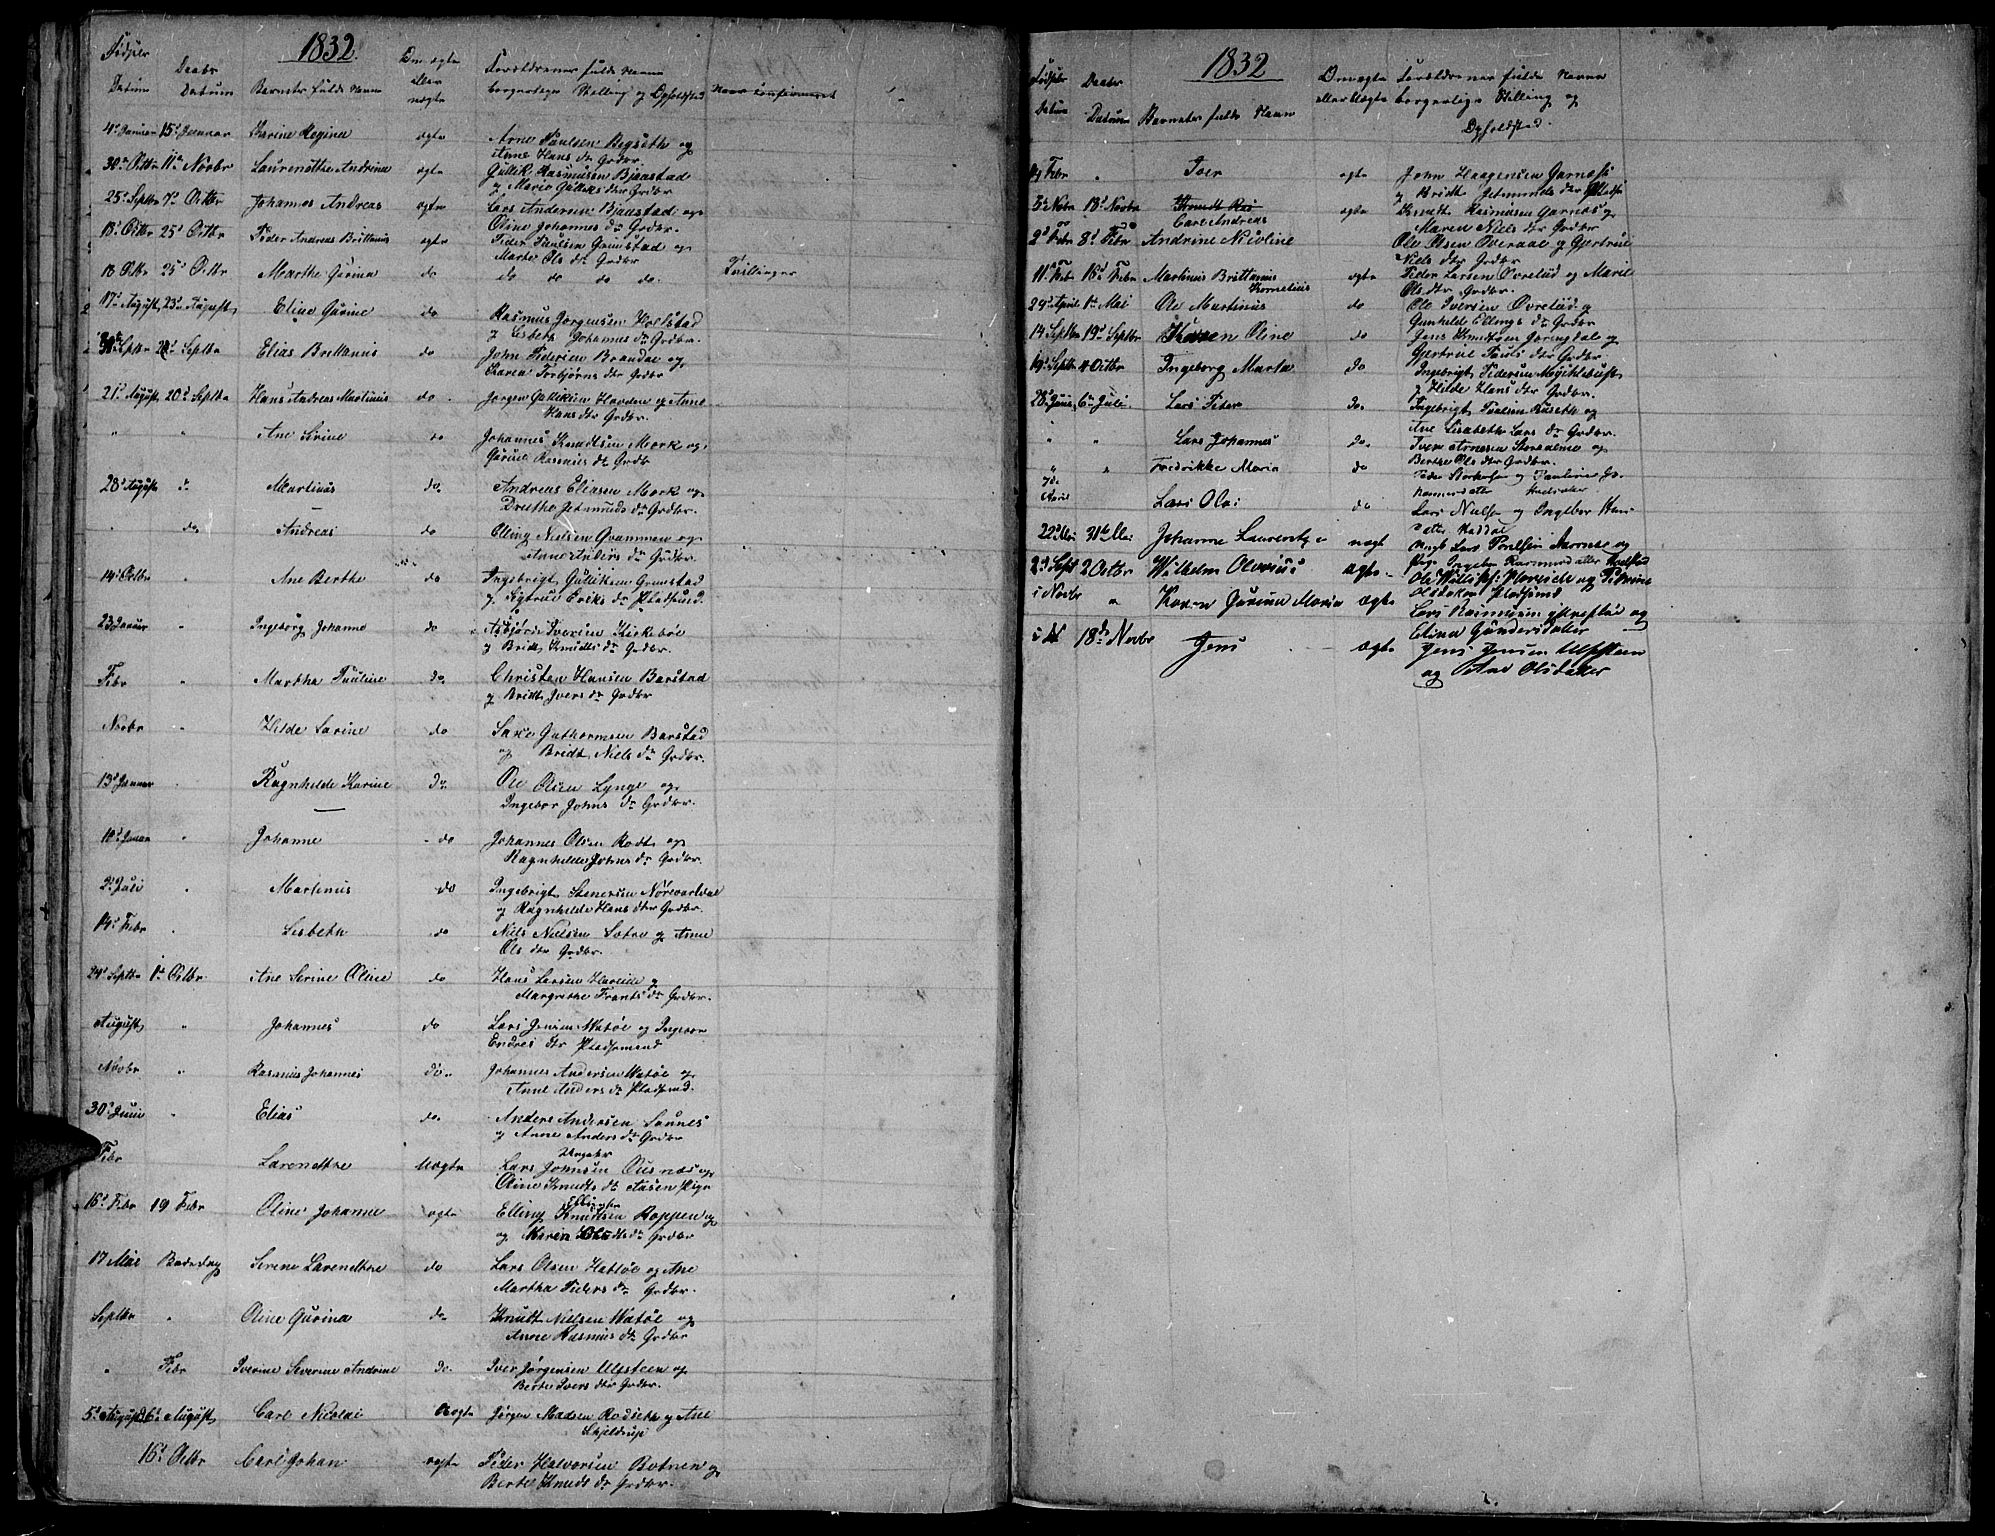 1832.
Fødsels Datum
Daabs Datum
Barnets fulde Navn
Om ægte eller uægte
Forældrenes fulde Navne borgerlige Stilling og Opholdsted
Naar konfirmeret
4de Januar 15de Januar Karine Regina ægte Arne Paulsen Begseth og
Anne Hans dtr Grdbr.
30te Octbr 11te Novbr Laurentthe Andrina ægte Gullik Rasmusen Bjaastad
og Marie Gulliks dtr Grdbr
25de Septbr 7de Octbr Johannes Andreas ægte Lars Andersen Bjaastad og
Oline Johannes dtr Grdbr.
13de Octbr 25de Octbr Peder Andreas Brittanius ægte Peder Paulsen Grimstad og
Marte Ols dtr Grdbr
13 Octbr 25de Octbr Marthe Gurina do do do do do. Tvillinger
17de August 23de August Eline Gurine do Rasmus Jørgensen Holstad
og Lisbeth Johannes dtr Grdbr.
Septbr Septbr Elias Brittanius do John Pedersen Brandal og
Karen Torbjørns dtr Grdbr
21de August 20de Septbr Hans Andreas Martinus do. Jørgen Gulliksen Havden og Anne
Hans dtr Grdbr.
" " Ane Sirine do Johannes Knudtsen Mork og
Gurine Rasmus dtr Grdbr
28de August Martinus do. Andreas Eliasen Mork og
Dorthe Jetmunds dtr Grdbr.
" do. Andreas do Elling Nielsen Grammen og
Anne Peders dtr Grdbr.
14de Octbr " Ane Berthe do Ingebrigt Gulliksen Grimstad
og Sigtrue Eriks dtr Pladsmd.
23de Januar " Ingeborg Johanne do Asbjørn Iversen Kirkebøe
og Bridt Knudts dtr Grdbr.
Febr " Martha Pauline do. Christen Hansen Barstad
og Bridt Ivers dtr Grdbr
Novbr " Hilde Larine do Saxe Guthormsen Barstad
og Bridt Niels dtr Grdbr.
13de Januar " Ragnhilde Karine do. Ole Olsen Lynge og
Ingebor Johns dtr Grdbr
10de Januar " Johanne do Johannes Olsen Rodt og
Ragnhilde Johns dtr Grdbr.
2de Juli " Martinus do Ingebrigt Stenersen Nørevartdal
og Ragnhilde Hans dtr Grdbr.
14de Febr " Lisbeth do Niels Nielsen Sætre og Anne
Ols dtr Grdbr.
24de Septbr 1te Octbr Ane Serine Oline do Hans Larsen Hareide og
Margrethe Frants dtr Grdbr.
August " Johannes do Lars Jensen Watøe og Ingebor
Endres dtr Pladsmand
Novbr " Rasmus Johannes do. Johannes Andersen Watøe og
Anne Anders dtr Pladsmd.
30te Juni " Elias do. Anders Andersen Launes
og Anne Anders dtr Grdbr
Febr Larentthe Uægte Ungkar Lars Johnsen Ousnes og
Oline Knudts dtr Aasen Pige
16de Febr 19 Febr Oline Johanne ægte Elling Knudtsen Roppen og
og Karin dtr Grdbr
17 Mai Bededag Serine Larentthe do Lars Olsen Hatløe og Ane
Martha Peders dtr Grdbr.
Septbr " Oline Gurina do. Knudt Nielsen Watøe og
Anne Rasmus dtr Grdbr
" Febr Iverine Severine Andrine do. Iver Jørgensen Ulfsteen og
Berte Ivers dtr Grdbr.
5te August 16de August Carl Nicolai Uægte Jørgen Madsen Rodseth og Ane
Skjeldrup
16de Octbr Carl Johan ægte Peder Halvorsen Botnen og
Berte Knudts dtr Grdbr.
1832
Fødsels Datum
Daabs Datum
Barnets fulde Navn
Om ægte eller Uægte
Forældrenes fulde Navne borgerlige Stilling og Opholdstad.
Febr " Iver ægte John Haagensen Garnes
og Bridt Jetmunds dtr Pladsm
5te Novbr 18de Novbr Knudt Ras Carl Andreas ægte Knudt Rasmusen Garnes og
Maren Niels dtr Grdbr
2de Febr 8de Febr Andrine Nicoline Ole Olsen Overaae og Gjertrue
Niels dtr Grdbr
11te Febr 16de Febr Martinus Brittanius Kornelius ægte Peder Larsen Øvrelid og Marie
Ols dtr Grdbr.
29de April 1te Mai Ole Martinus do Ole Iversen Øvrelid og
Gunhild Ellings dtr Grdbr
14 Septbr 19de Septbr Karen Oline do Jens Knudtsen Goringdal og
Gjertrue Pauls dtr Grdbr
19de Septbr 4 Octbr Ingeborg Marta do Ingebrigt Pedersen Myklebust
og Hilde Hans dtr Grdbr.
28de Juni 6te Juli. Lars Peter do. Ingebrigt Paulsen Ruseth og
Ane Lisabeth Lars dtr Grdbr.
" " Lars Johannes do. Iver Arnesen Skeidalme og
Berthe Ols dtr Grdbr.
" " Fredrikke Maria do Peder og Pauline Jo-
hannesdatter
7de April Lars Olai do Lars Nielsen og Ingebor Han-
datter Haddal
22de Mai 31te Mai Johanne Laurentze uægt Ungk Lars Poulsen og
Pige Ingebor Rasmusdatter
29 Septb 2 Octbr Wilhelm Olavius ægte Ole og Petrine
Olsdatter Pladsmd
i Novbr " Karen Gurina Maria ægte Lars Rasmusen og
Elina Gundersdatter
i D 18de Novbr Jens ægte Jens Jensen Ulfsteen
og Ane Olsdatter